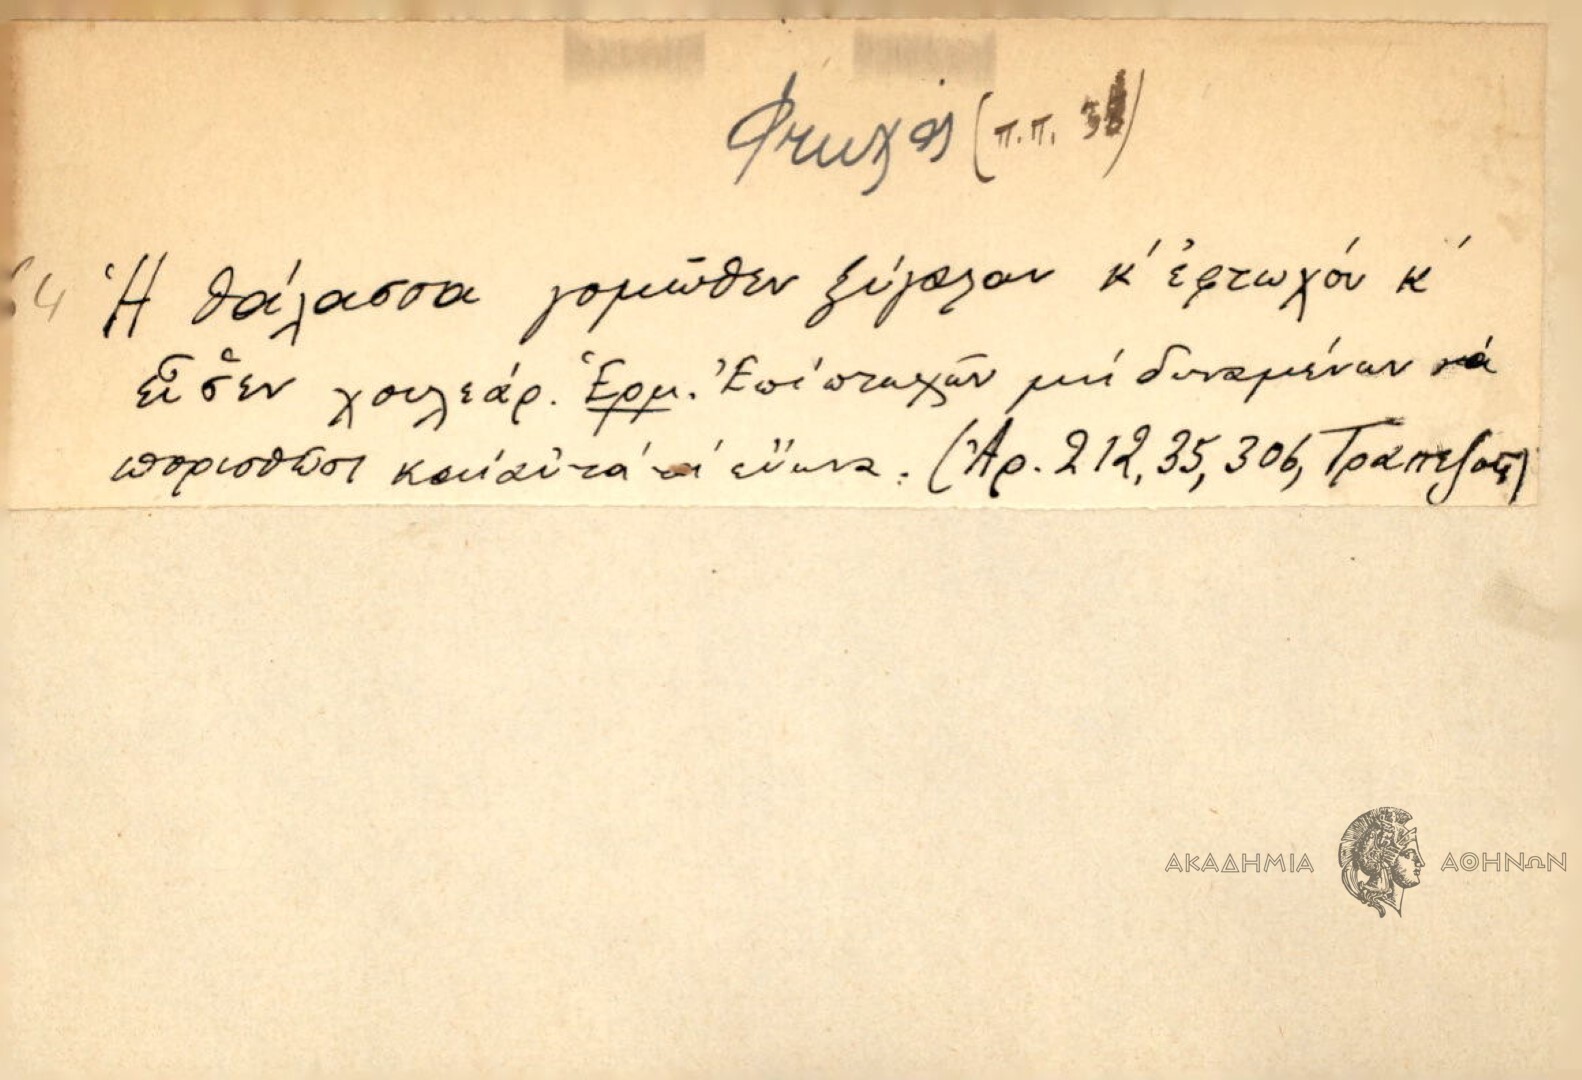 Φτωχός (π.π. 38)
54 Ἡ θάλασσα γομῶθεν ξύγαλαν κ' ἐφτωχόν κ'
εὗρεν χουλεάρ. Ἑρμ. Ἐπί πτωχῶν μή δυναμένων νά
πορισθῶσι καί αὐτά τά εὔωνα. (Ἀρ. 212, 35, 306, Τραπεζοῦς)
ΑΚΑΔΗΜΙΑ ΑΘΗΝΩΝ